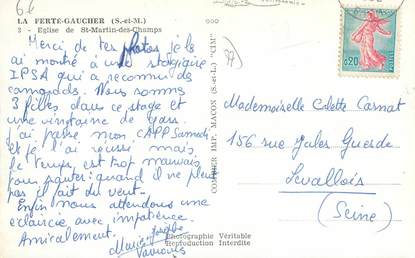 61
LA FERTÉ-GAUCHER (S.-et-M.)
3 - Eglise de St-Martin-des-Champs
Merci de tes photos je les
ai montré à une stagiaire
IPSA qui a reconnu des
camarades. Nous sommes
3 filles dans ce stage et
une vingtaine de gars.
J'ai passé mon CAPP Samedi
et je l'ai réussi mais
le temps est trop mauvais
pour sauter: quand il ne pleut
pas il fait du vent.
Enfin nous attendons une
éclaircie avec impatience.
Amicalement.
Marie-Josèphe
Photographie Véritable
Reproduction Interdite
COMBIER IMP. MACON (S.-et-L.) "CIM"
77
0,20
Mademoiselle Colette Carnat
156 rue Jules Guesde
Levallois
(Seine)